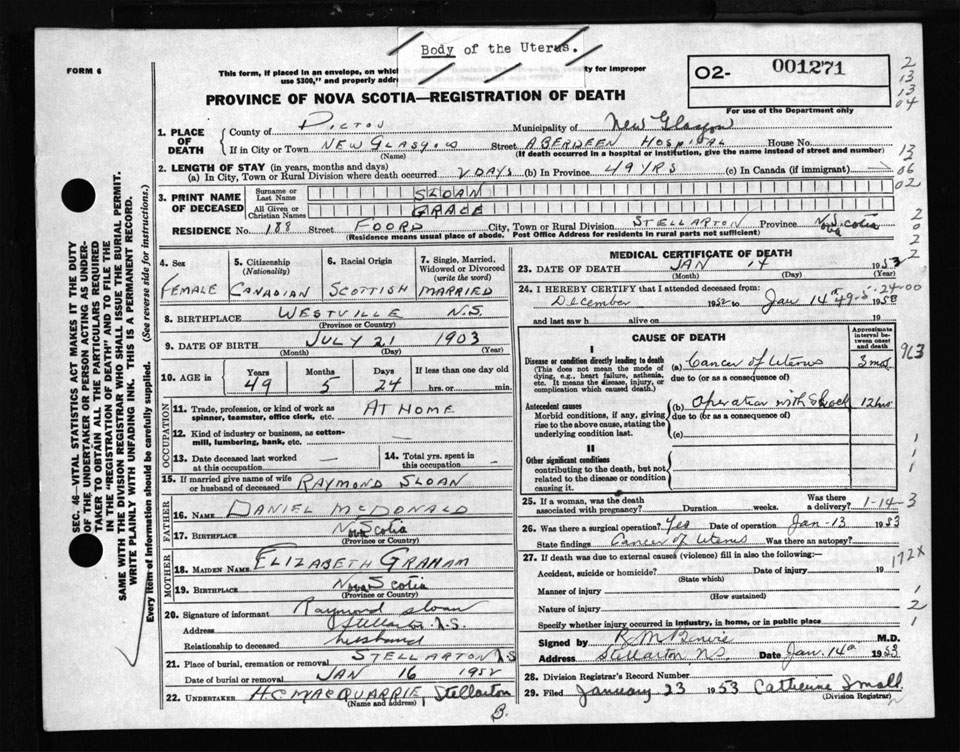 Body of the Uterus.
FORM 6
This form, if placed in an envelope, on which
ty for improper
use $300," and properly addr
O2- 001271
PROVINCE OF NOVA SCOTIA—REGISTRATION OF DEATH
For use of the Department only
2
13
13
04
13
12
06
02
2
0
2
2
1. PLACE OF DEATH
County of Pictou Municipality of New Glasgow
If in City or Town NEW GLASGOW Street ABERDEEN HOSPITAL House No.
(Name) (If death occurred in a hospital or institution, give the name instead of street and number)
2. LENGTH OF STAY (in years, months and days)
(a) In City, Town or Rural Division where death occurred DAYS (b) In Province 49 YRS (c) In Canada (if immigrant)
3. PRINT NAME OF DECEASED
Surname or Last Name SLOAN
All Given or Christian Names GRACE
RESIDENCE No. 188 Street FOORD City, Town or Rural Division STELLARTON Province Nova Scotia
(Residence means usual place of abode. Post Office Address for residents in rural parts not sufficient)
4. Sex FEMALE
5. Citizenship (Nationality) CANADIAN
6. Racial Origin SCOTTISH
7. Single, Married, Widowed or Divorced (write the word) MARRIED
8. BIRTHPLACE WESTVILLE N.S.
(Province or Country)
9. DATE OF BIRTH JULY 21 1903
(Month) (Day) (Year)
10. AGE in Years 49 Months 5 Days 24 If less than one day old hrs. or min.
OCCUPATION
11. Trade, profession, or kind of work as spinner, teamster, office clerk, etc. AT HOME
12. Kind of industry or business, as cotton-mill, lumbering, bank, etc. —
13. Date deceased last worked at this occupation —
14. Total yrs. spent in this occupation —
15. If married give name of wife or husband of deceased RAYMOND SLOAN
FATHER
16. NAME DANIEL McDONALD
17. BIRTHPLACE Nova Scotia
(Province or Country)
MOTHER
18. MAIDEN NAME ELIZABETH GRAHAM
19. BIRTHPLACE Nova Scotia
(Province or Country)
20. Signature of informant Raymond Sloan
Address Stellarton N.S.
Relationship to deceased husband
21. Place of burial, cremation or removal STELLARTON NS
Date of burial or removal JAN 16 1952
22. UNDERTAKER H C MACQUARRIE, Stellarton
(Name and address)
B.
MEDICAL CERTIFICATE OF DEATH
23. DATE OF DEATH JAN 14 1953
(Month) (Day) (Year)
24. I HEREBY CERTIFY that I attended deceased from:
December 1952 to Jan 14 49-5-24-00
and last saw h alive on 19
CAUSE OF DEATH
Approximate interval between onset and death
Disease or condition directly leading to death
(This does not mean the mode of dying, e.g., heart failure, asthenia, etc. It means the disease, injury, or complication which caused death.)
(a) Cancer of Uterus 3 mos
due to (or as a consequence of)
963
Antecedent causes
Morbid conditions, if any, giving rise to the above cause, stating the underlying condition last.
(b) Operation with Shock 12 hrs
due to (or as a consequence of)
(c)
II
Other significant conditions
contributing to the death, but not related to the disease or condition causing it.
1
1
1
25. If a woman, was the death associated with pregnancy? Duration weeks. Was there a delivery? 1-14-3
26. Was there surgical operation? Yes Date of operation Jan-13 1953
State findings Cancer of Uterus Was there an autopsy?
172X
27. If death was due to external causes (violence) fill in also the following:—
Accident, suicide or homicide? Date of injury 19
(State which)
Manner of injury
(How sustained)
Nature of injury
Specify whether injury occurred in industry, in home, or in public place
1
2
1
Signed by R M Benvie M.D.
Address Stellarton NS Date Jan. 14th 1953
28. Division Registrar's Record Number
29. Filed January 23 1953 Catherine Small
(Division Registrar)
SEC. 46—VITAL STATISTICS ACT MAKES IT THE DUTY
OF THE UNDERTAKER OR PERSON ACTING AS UNDER-
TAKER TO OBTAIN ALL THE PARTICULARS REQUIRED
IN THE "REGISTRATION OF DEATH" AND TO FILE THE
SAME WITH THE DIVISION REGISTRAR WHO SHALL ISSUE THE BURIAL PERMIT.
WRITE PLAINLY WITH UNFADING INK. THIS IS A PERMANENT RECORD.
Every item of information should be carefully supplied. (See reverse side for instructions.)